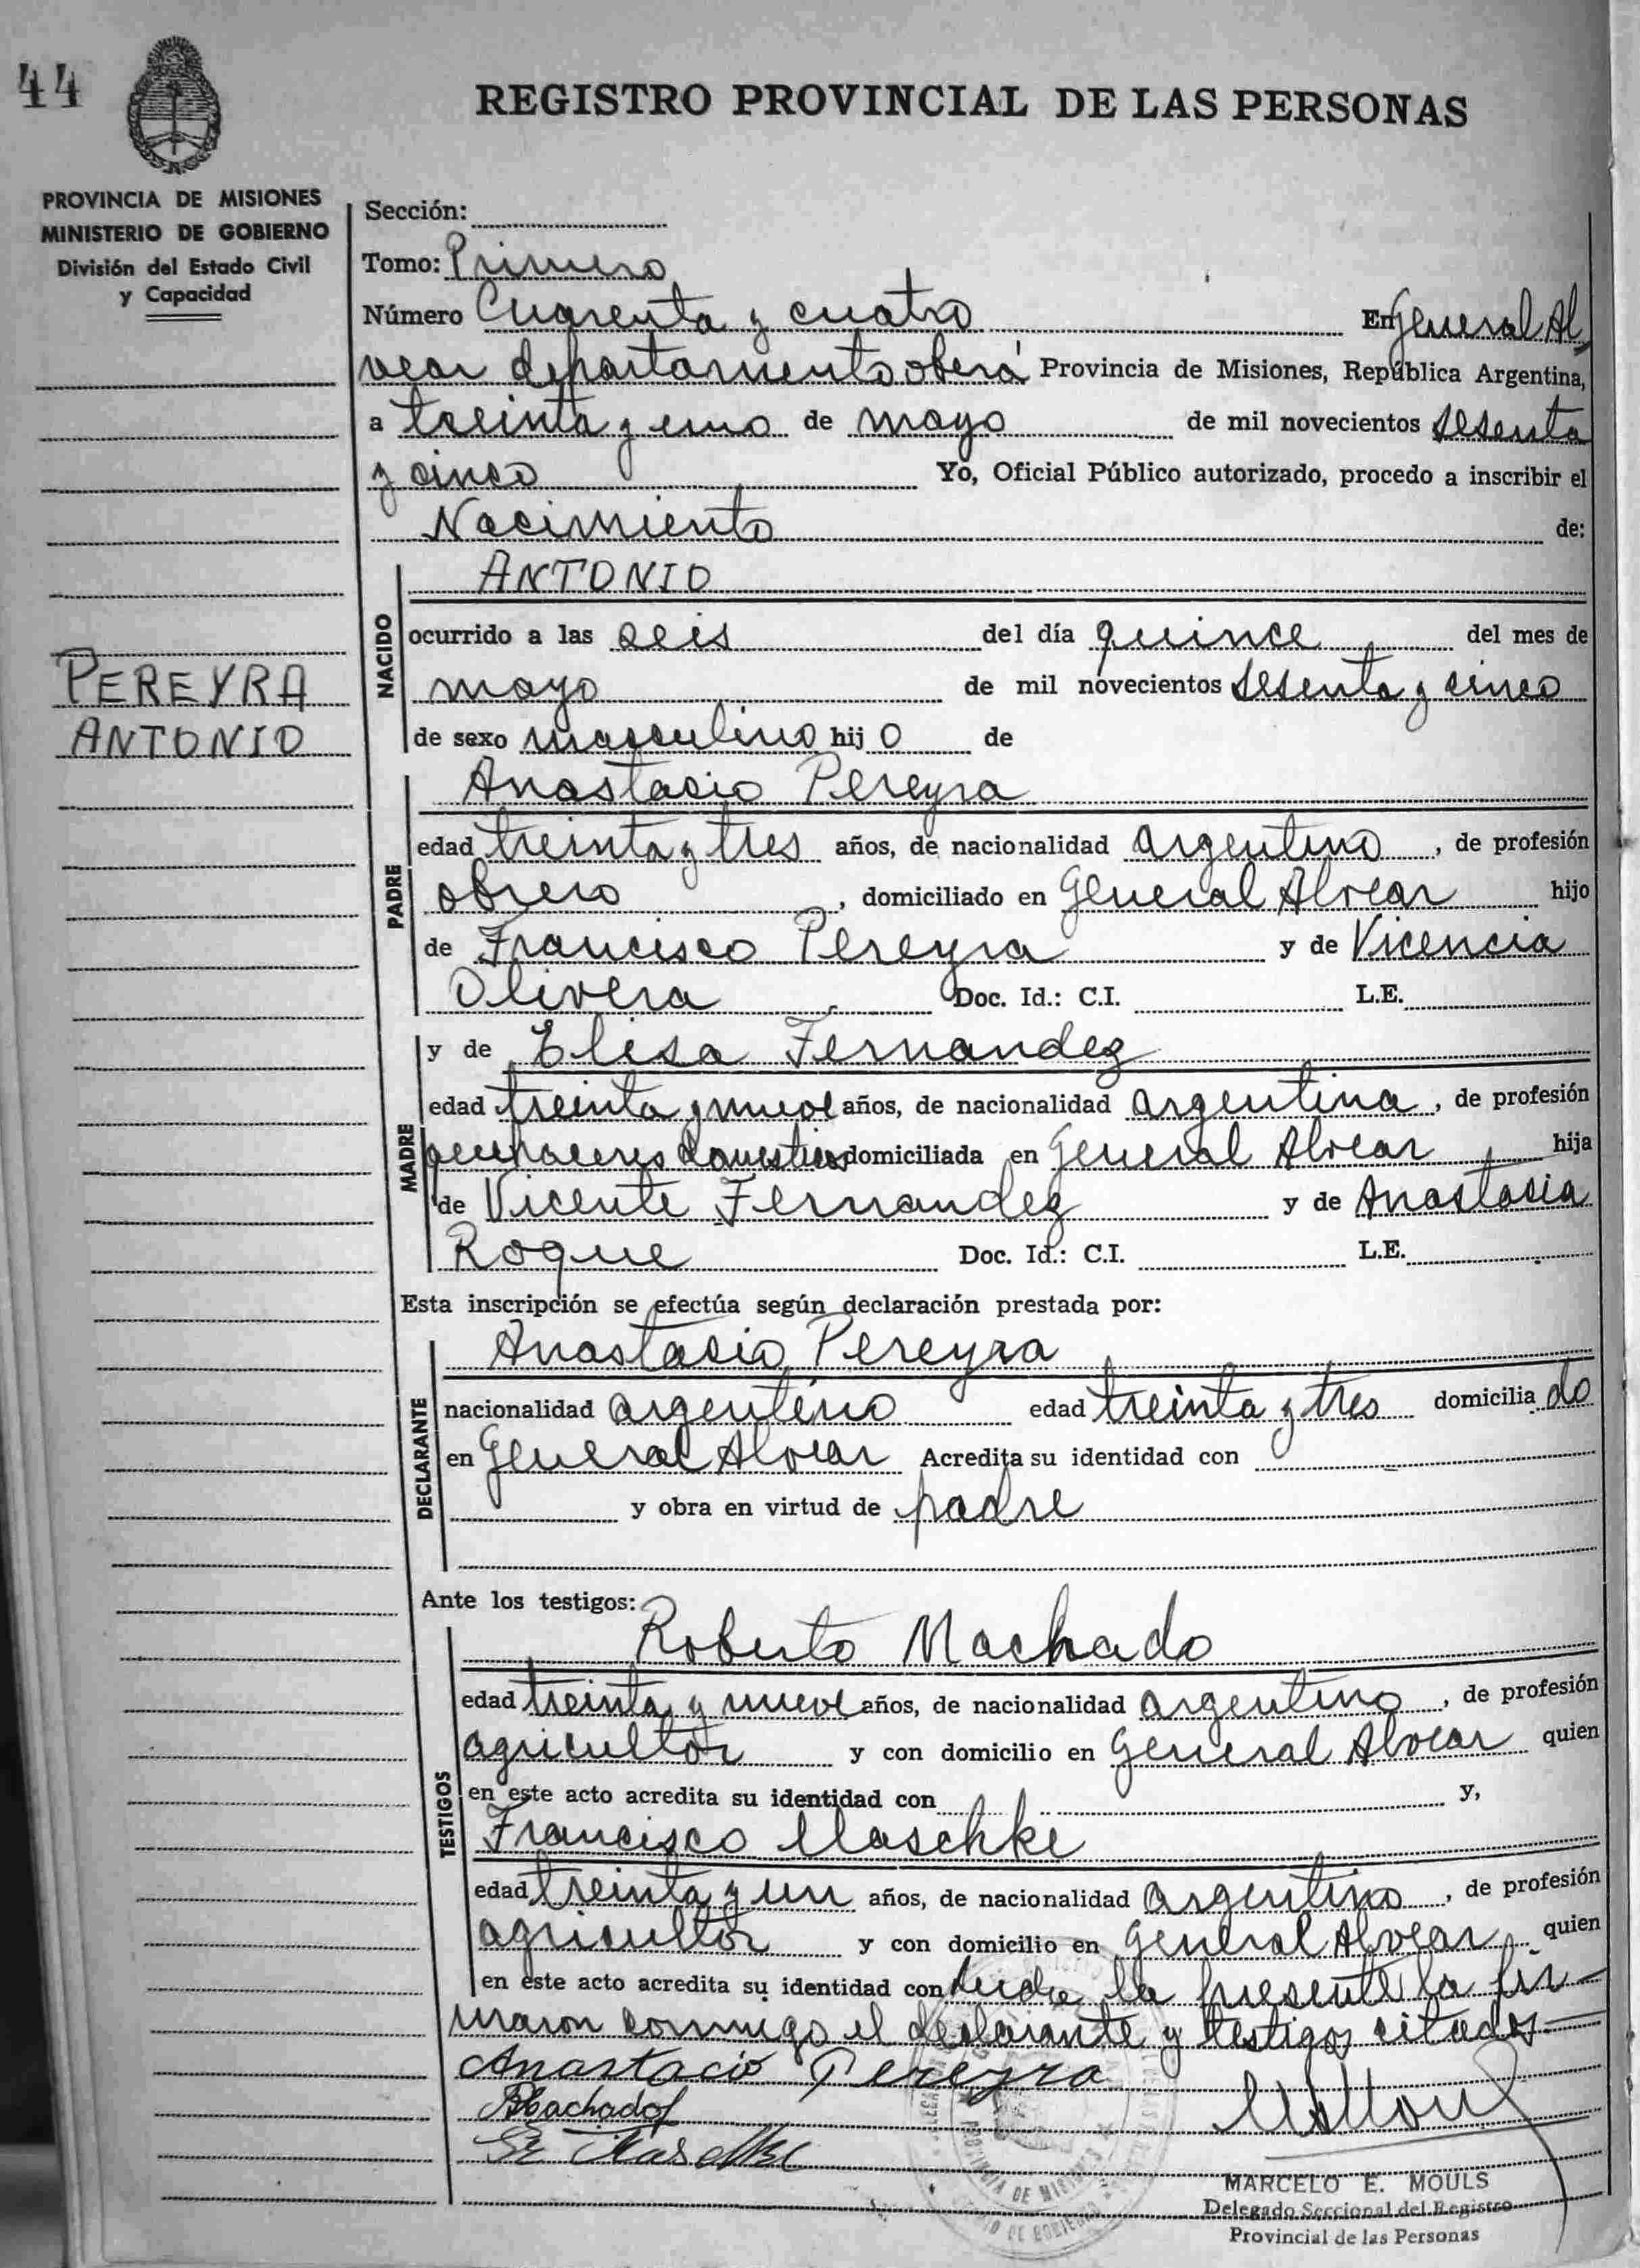 44
REGISTRO PROVINCIAL DE LAS PERSONAS
PROVINCIA DE MISIONES
MINISTERIO DE GOBIERNO
División del Estado Civil
y Capacidad
PEREYRA
ANTONIO
Sección:
Tomo: Primero
Número Cuarenta y cuatro En General Al
vear departamento oberá Provincia de Misiones, República Argentina,
a treinta y uno de mayo de mil novecientos sesenta
y cinco Yo, Oficial Público autorizado, procedo a inscribir el
Nacimiento de:
NACIDO
ANTONIO
ocurrido a las seis del día quince del mes de
mayo de mil novecientos sesenta y cinco
de sexo masculino hijo de
PADRE
Anastacio Pereyra
edad treinta y tres años, de nacionalidad argentino, de profesión
obrero, domiciliado en General Alvear hijo
de Francisco Pereyra y de Vicencia
Olivera Doc. Id.: C.I. L.E.
MADRE
y de Elisa Fernandez
edad treinta y nueve años, de nacionalidad argentina, de profesión
quehaceres domesticos domiciliada en General Alvear hija
de Vicente Fernandez y de Anastasia
Roque Doc. Id.: C.I. L.E.
Esta inscripción se efectúa según declaración prestada por:
DECLARANTE
Anastacio Pereyra
nacionalidad argentino edad treinta y tres domiciliado
en General Alvear Acredita su identidad con
y obra en virtud de padre
Ante los testigos:
TESTIGOS
Roberto Machado
edad treinta y nueve años, de nacionalidad argentino, de profesión
agricultor y con domicilio en General Alvear quien
en este acto acredita su identidad con y,
Francisco Maschke
edad treinta y un años, de nacionalidad argentino, de profesión
agricultor y con domicilio en General Alvear quien
en este acto acredita su identidad con la presente la fir-
maron conmigo el declarante y testigos citados.
Anastacio Pereyra
RMachado
MARCELO E. MOULS
Delegado Seccional del Registro
Provincial de las Personas
PROVINCIA DE MISIONES